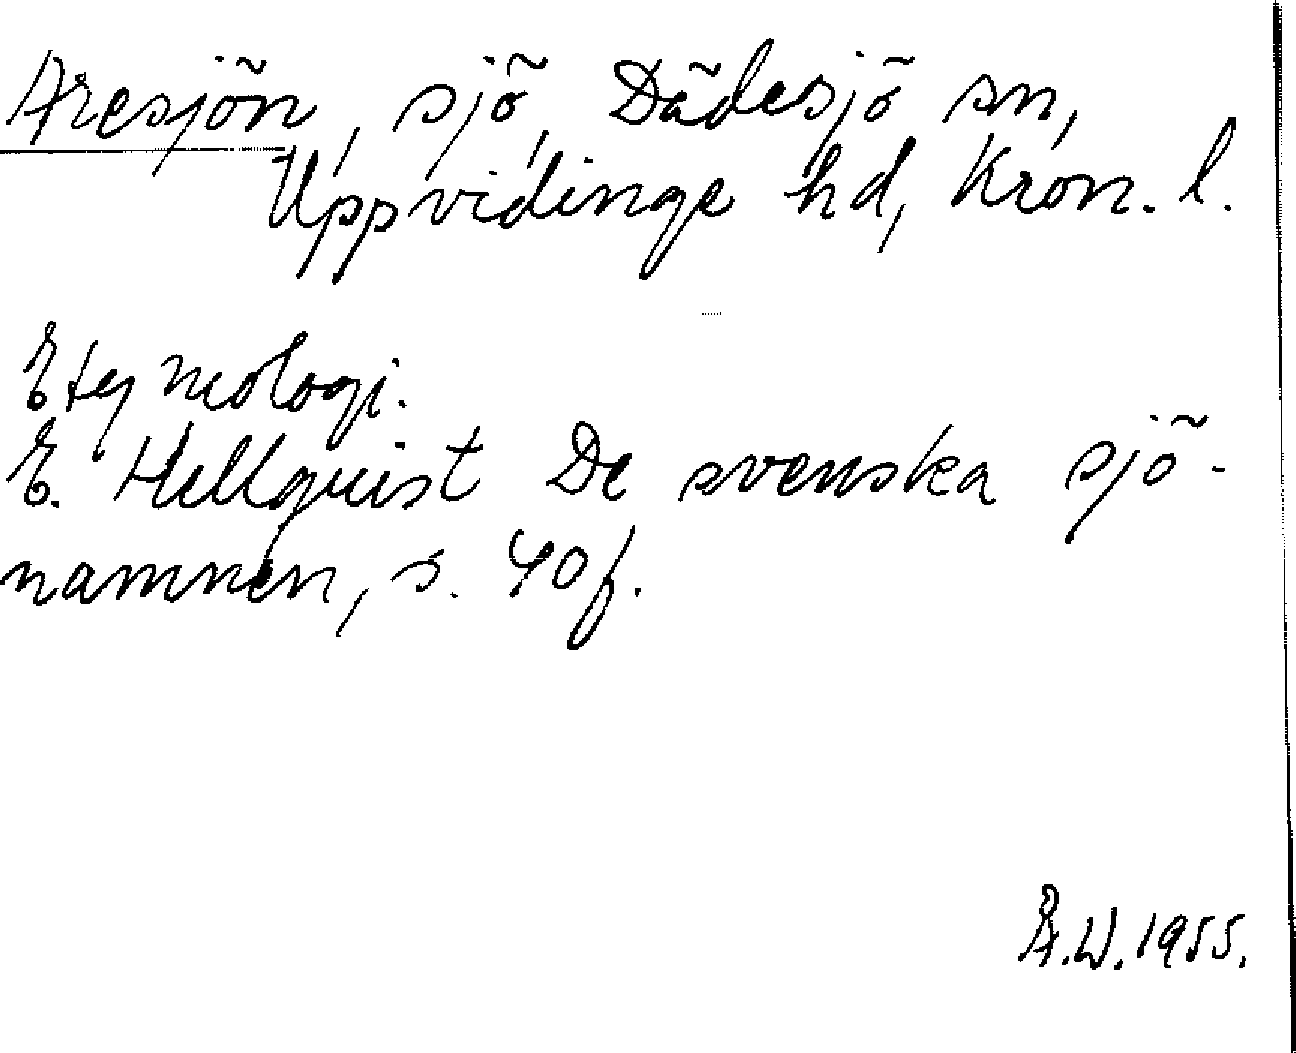 Aresjön, sjö, Dädesjö sn,
Uppvidinge hd, Kron. l.
Etymologi.
E. Hellquist De svenska sjö-
namnen, s. 40 f.
Å.W. 1955.